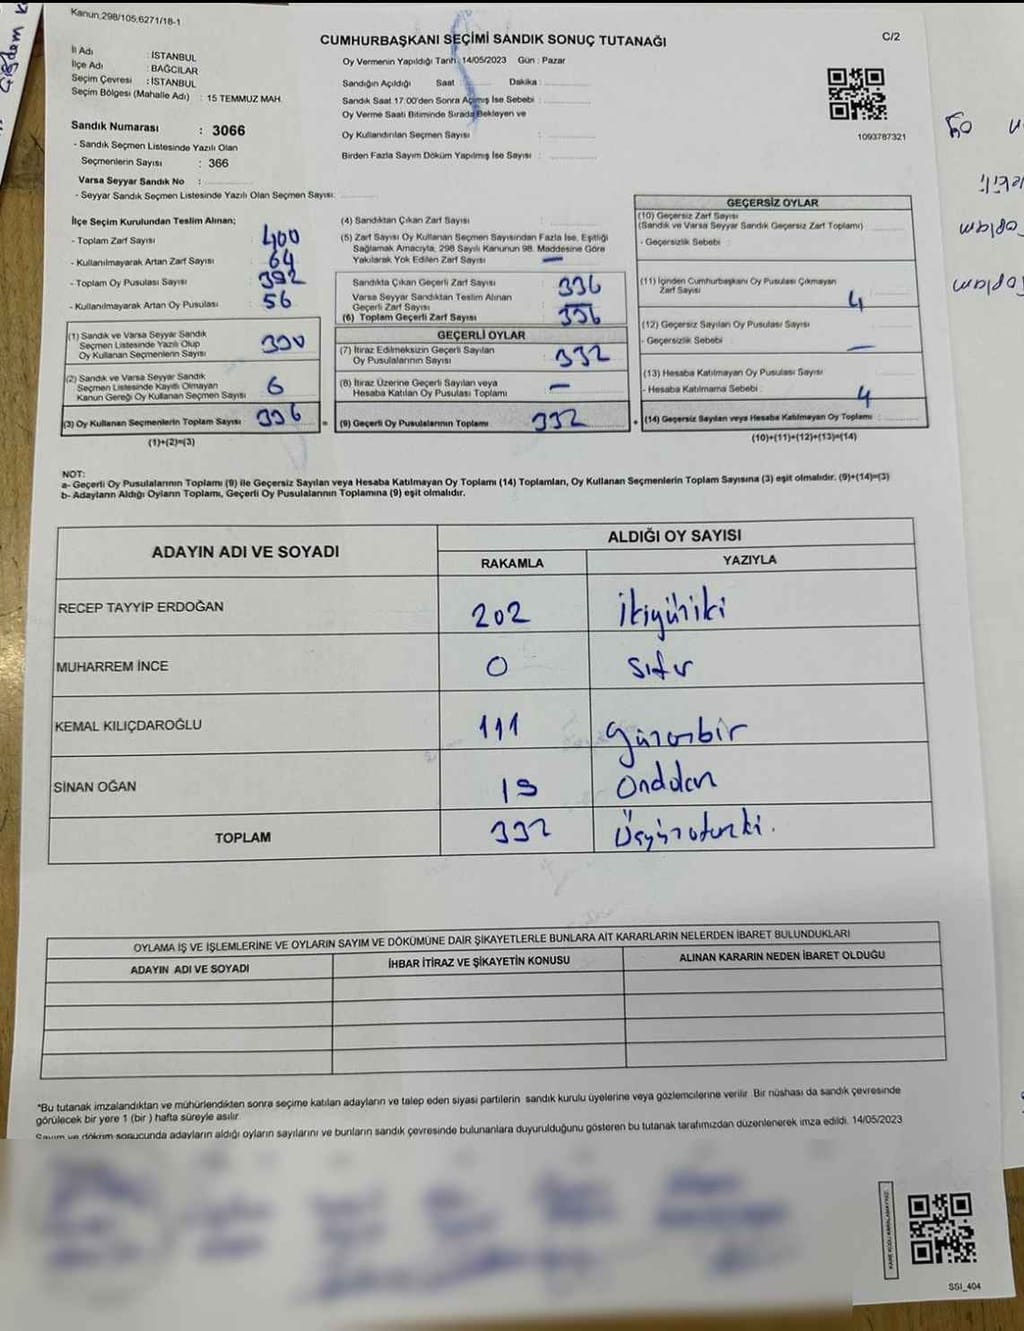 Kanun,298/105,6271/18-1
CUMHURBAŞKANI SEÇİMİ SANDIK SONUÇ TUTANAĞI
C/2
İl Adı : İSTANBUL
İlçe Adı : BAĞCILAR
Seçim Çevresi : İSTANBUL
Seçim Bölgesi (Mahalle Adı) : 15 TEMMUZ MAH.
Sandık Numarası : 3066
- Sandık Seçmen Listesinde Yazılı Olan
Seçmenlerin Sayısı : 366
Varsa Seyyar Sandık No :
- Seyyar Sandık Seçmen Listesinde Yazılı Olan Seçmen Sayısı:
Oy Vermenin Yapıldığı Tarih: 14/05/2023 Gün : Pazar
Sandığın Açıldığı Saat Dakika :
Sandık Saat 17.00'den Sonra Açılmış İse Sebebi :
Oy Verme Saati Bitiminde Sırada Bekleyen ve
Oy Kullandırılan Seçmen Sayısı :
Birden Fazla Sayım Döküm Yapılmış İse Sayısı :
1093787321
İlçe Seçim Kurulundan Teslim Alınan;
- Toplam Zarf Sayısı 400
- Kullanılmayarak Artan Zarf Sayısı 64
- Toplam Oy Pusulası Sayısı 392
- Kullanılmayarak Artan Oy Pusulası 56
(1) Sandık ve Varsa Seyyar Sandık
Seçmen Listesinde Yazılı Olup
Oy Kullanan Seçmenlerin Sayısı 330
(2) Sandık ve Varsa Seyyar Sandık
Seçmen Listesinde Kayıtlı Olmayan
Kanun Gereği Oy Kullanan Seçmen Sayısı 6
(3) Oy Kullanan Seçmenlerin Toplam Sayısı 336 =
(1)+(2)=(3)
(4) Sandıktan Çıkan Zarf Sayısı :
(5) Zarf Sayısı Oy Kullanan Seçmen Sayısından Fazla İse, Eşitliği
Sağlamak Amacıyla, 298 Sayılı Kanunun 98. Maddesine Göre
Yakılarak Yok Edilen Zarf Sayısı —
Sandıkta Çıkan Geçerli Zarf Sayısı 336
Varsa Seyyar Sandıktan Teslim Alınan
Geçerli Zarf Sayısı —
(6) Toplam Geçerli Zarf Sayısı 336
GEÇERLİ OYLAR
(7) İtiraz Edilmeksizin Geçerli Sayılan
Oy Pusulalarının Sayısı 332
(8) İtiraz Üzerine Geçerli Sayılan veya
Hesaba Katılan Oy Pusulası Toplamı —
(9) Geçerli Oy Pusulalarının Toplamı 332 +
GEÇERSİZ OYLAR
(10) Geçersiz Zarf Sayısı
(Sandık ve Varsa Seyyar Sandık Geçersiz Zarf Toplamı) :
- Geçersizlik Sebebi :
(11) İçinden Cumhurbaşkanı Oy Pusulası Çıkmayan
Zarf Sayısı 4
(12) Geçersiz Sayılan Oy Pusulası Sayısı :
- Geçersizlik Sebebi : —
(13) Hesaba Katılmayan Oy Pusulası Sayısı :
- Hesaba Katılmama Sebebi : 4
(14) Geçersiz Sayılan veya Hesaba Katılmayan Oy Toplamı :
(10)+(11)+(12)+(13)=(14)
NOT:
a- Geçerli Oy Pusulalarının Toplamı (9) ile Geçersiz Sayılan veya Hesaba Katılmayan Oy Toplamı (14) Toplamları, Oy Kullanan Seçmenlerin Toplam Sayısına (3) eşit olmalıdır. (9)+(14)=(3)
b- Adayların Aldığı Oyların Toplamı, Geçerli Oy Pusulalarının Toplamına (9) eşit olmalıdır.
ADAYIN ADI VE SOYADI
ALDIĞI OY SAYISI
RAKAMLA YAZIYLA
RECEP TAYYİP ERDOĞAN 202 ikiyüziki
MUHARREM İNCE 0 sıfır
KEMAL KILIÇDAROĞLU 111 yüzonbir
SİNAN OĞAN 19 ondokuz
TOPLAM 332 üçyüzotuziki.
OYLAMA İŞ VE İŞLEMLERİNE VE OYLARIN SAYIM VE DÖKÜMÜNE DAİR ŞİKAYETLERLE BUNLARA AİT KARARLARIN NELERDEN İBARET BULUNDUKLARI
ADAYIN ADI VE SOYADI İHBAR İTİRAZ VE ŞİKAYETİN KONUSU ALINAN KARARIN NEDEN İBARET OLDUĞU
*Bu tutanak imzalandıktan ve mühürlendikten sonra seçime katılan adayların ve talep eden siyasi partilerin sandık kurulu üyelerine veya gözlemcilerine verilir. Bir nüshası da sandık çevresinde
görülecek bir yere 1 (bir ) hafta süreyle asılır.
Sayım ve döküm sonucunda adayların aldığı oyların sayılarını ve bunların sandık çevresinde bulunanlara duyurulduğunu gösteren bu tutanak tarafımızdan düzenlenerek imza edildi. 14/05/2023
SSI_404
Çiğdem
Toplam
Toplam